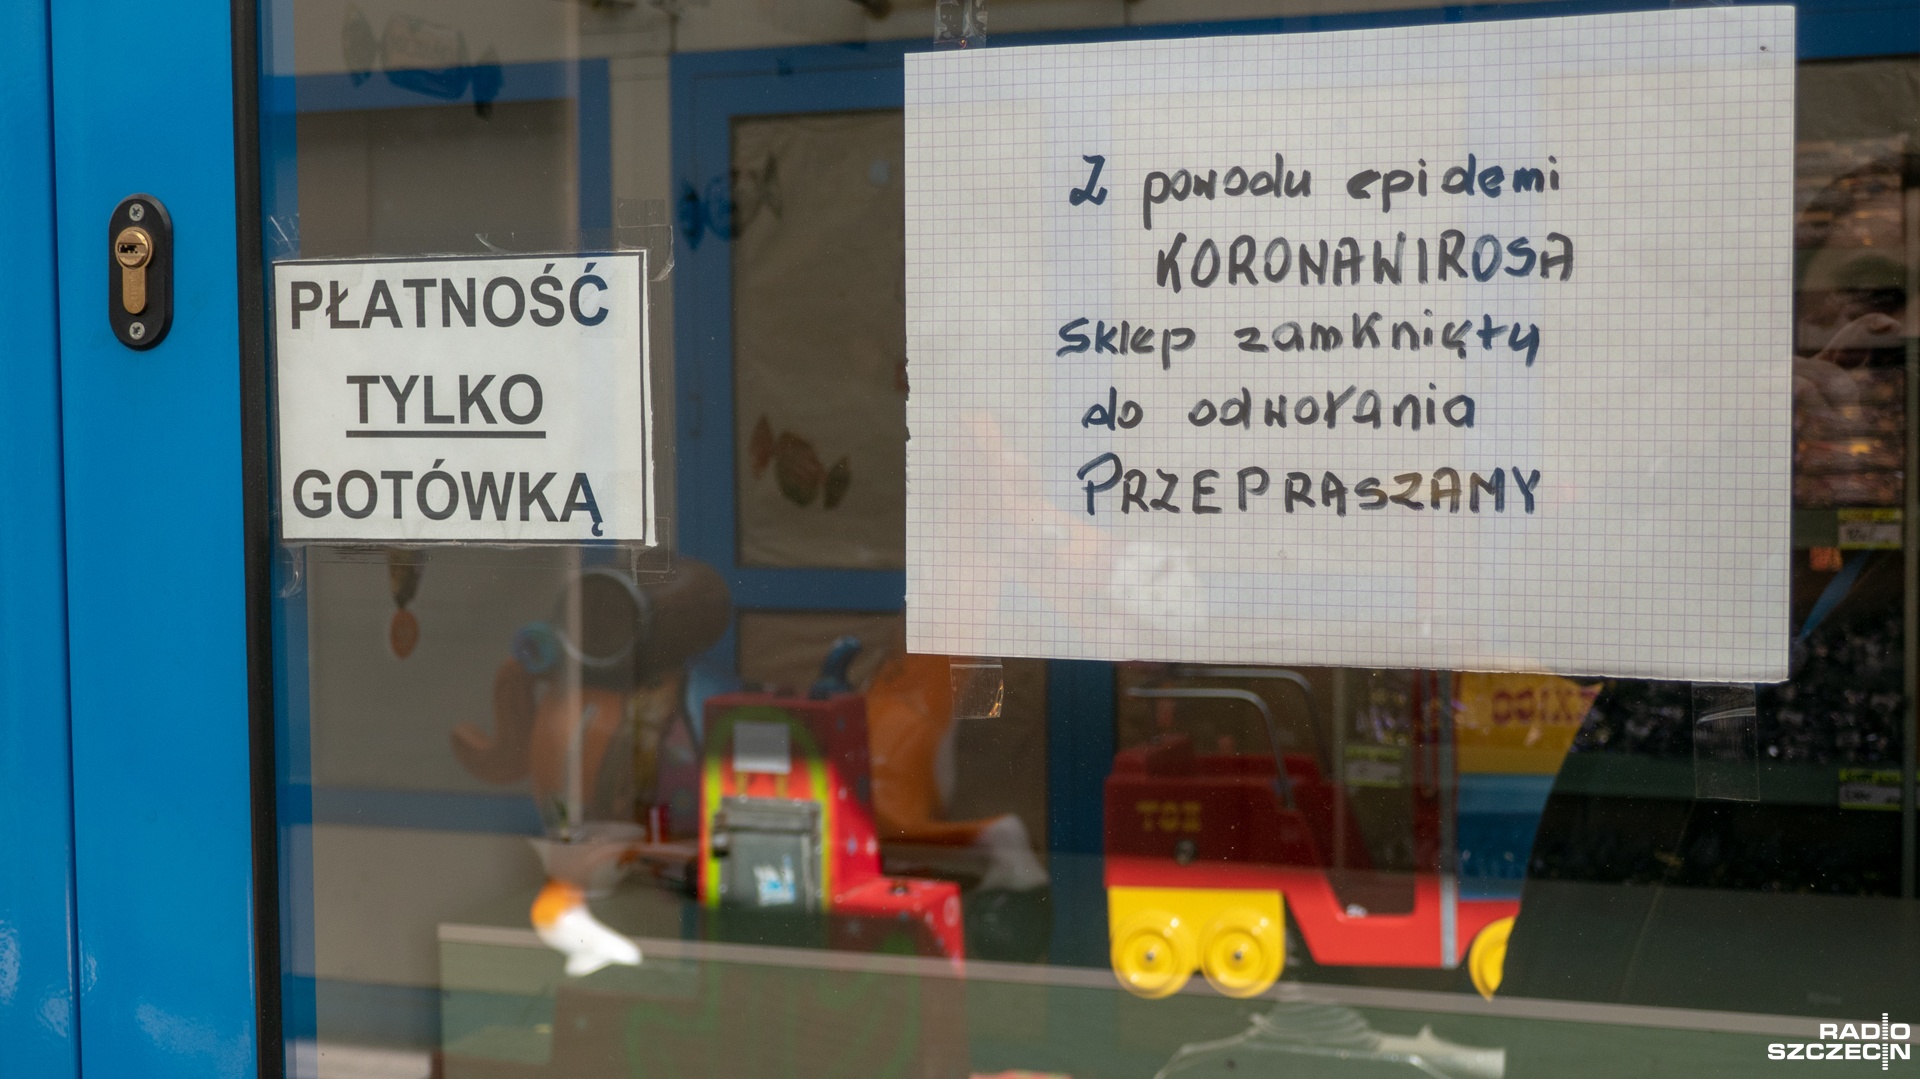 PŁATNOŚĆ
TYLKO
GOTÓWKĄ
Z powodu epidemi
KORONAWIROSA
Sklep zamknięty
do odwołania
PRZEPRASZAMY
TOZ
RADIO
SZCZECIN